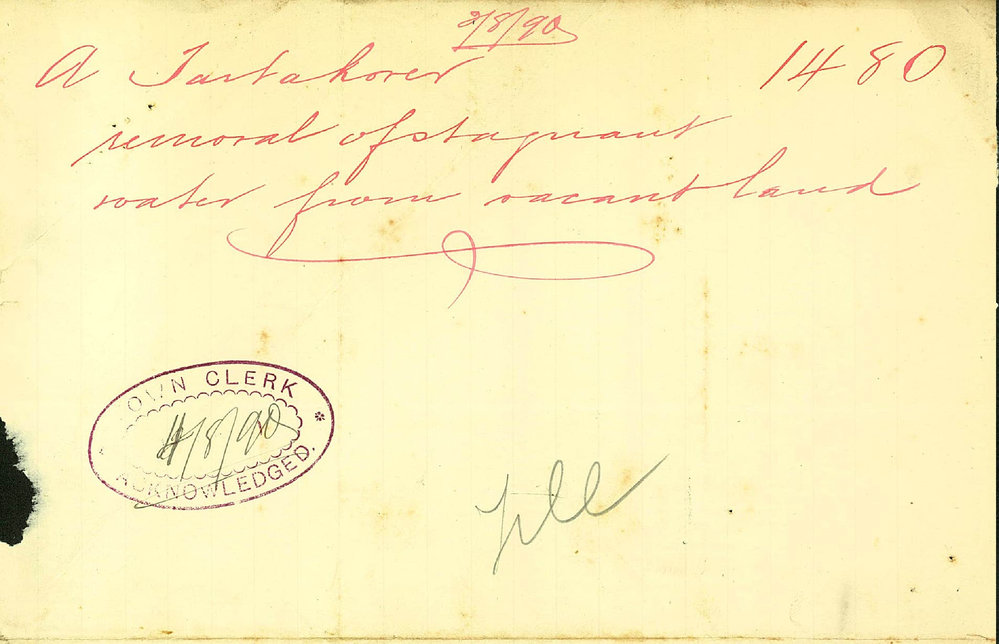 2/8/90
A Tartakover 1480
removal of stagnant
water from vacant land
OWN CLERK
4/8/90
ACKNOWLEDGED.